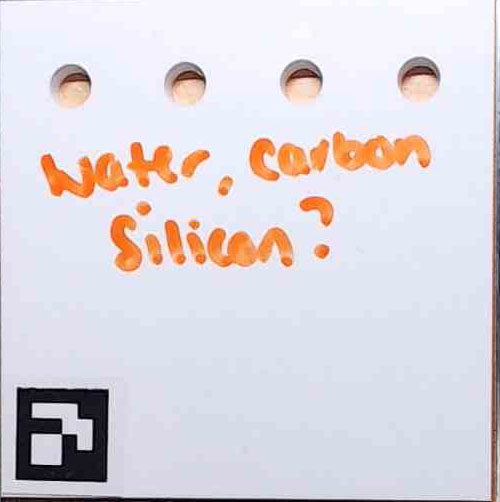 Water, carbon
Silicon?